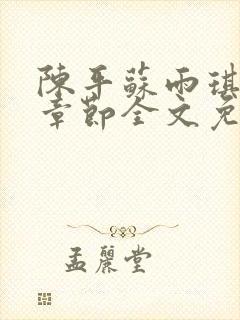 陳平蘇雨琪
章節全文免
孟麗堂